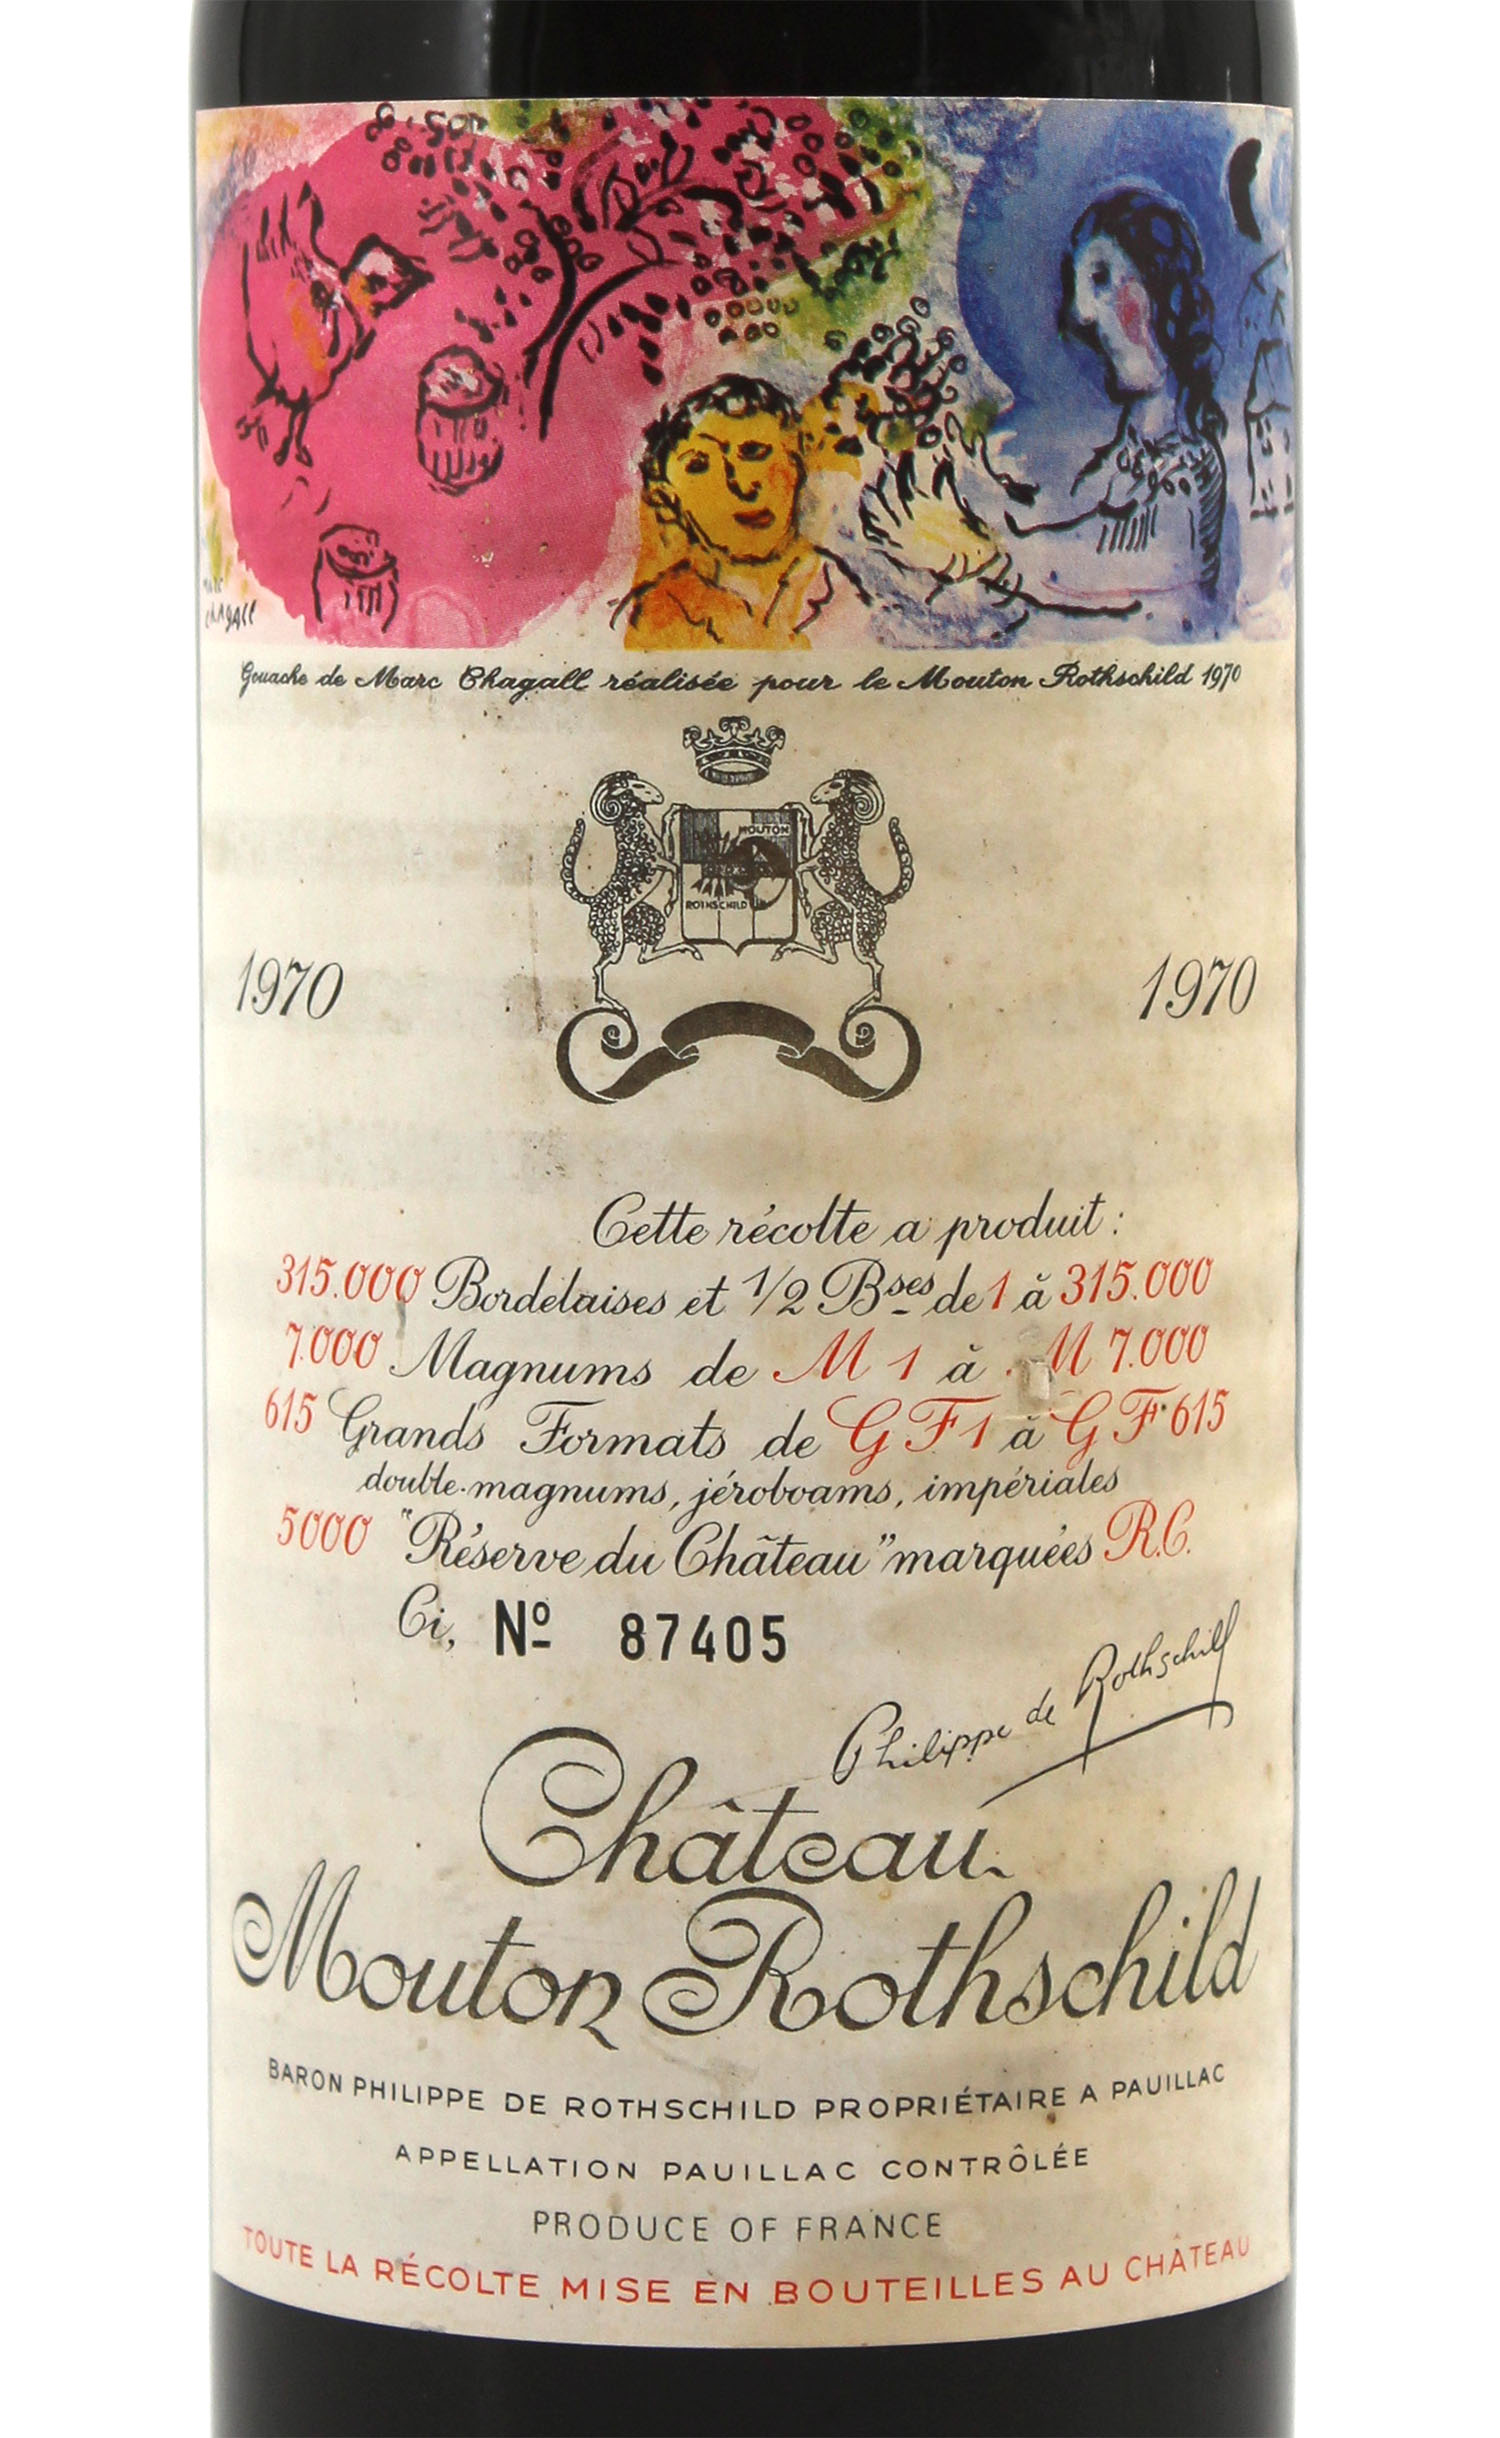 MARC
CHAGALL
Gouache de Marc Chagall réalisée pour le Mouton Rothschild 1970
MOUTON
ROTHSCHILD
1970 1970
Cette récolte a produit :
315.000 Bordelaises et 1/2 Bses de 1 à 315.000
7.000 Magnums de M 1 à M 7.000
615 Grands Formats de GF 1 à GF 615
double-magnums, jéroboams, impériales
5000 "Réserve du Château" marquées R.C.
Ci, Nº 87405
Philippe de Rothschild
Château
Mouton Rothschild
BARON PHILIPPE DE ROTHSCHILD PROPRIÉTAIRE A PAUILLAC
APPELLATION PAUILLAC CONTRÔLÉE
PRODUCE OF FRANCE
TOUTE LA RÉCOLTE MISE EN BOUTEILLES AU CHÂTEAU